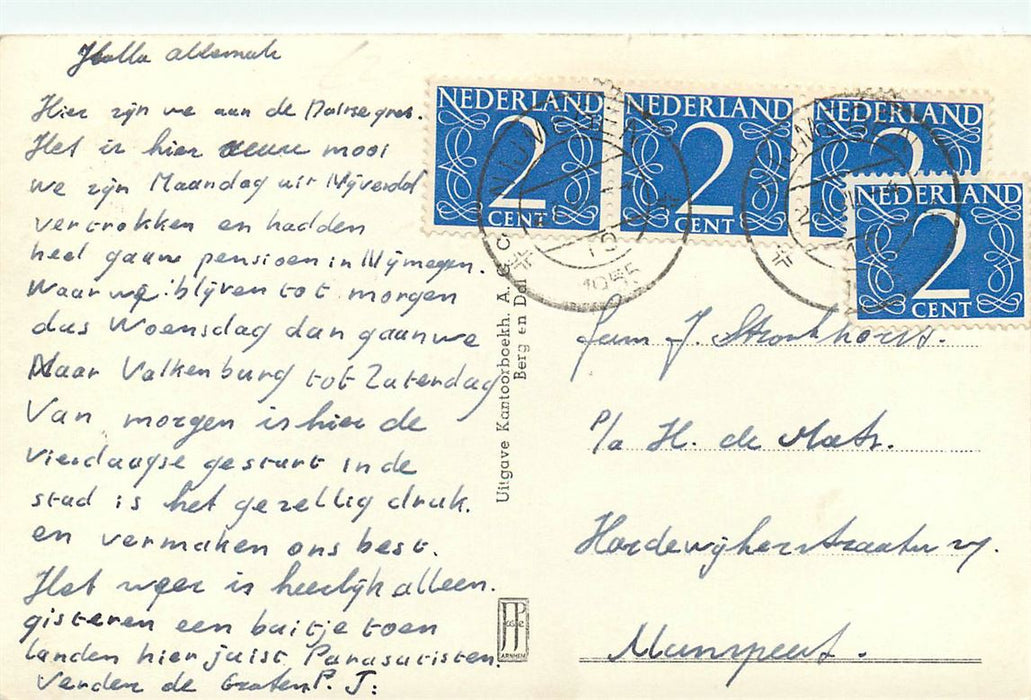 Hallo allemaal
Hier zijn we aan de Duitse grens.
Het is hier mooi
we zijn Maandag uit Nijverdal
vertrokken en hadden
heel gauw pensioen in Nijmegen.
Waar we blijven tot morgen
dus Woensdag dan gaan we
Naar Valkenburg tot Zaterdag
Van morgen is hier de
vierdaagse gestart in de
stad is het gezellig druk.
en vermaken ons best.
Het weer is heerlijk alleen.
gisteren een buitje toen
landen hier juist Parasutisten.
Verder de Groeten P. J:
NEDERLAND
2
CENT
NEDERLAND
2
CENT
NEDERLAND
2
NEDERLAND
2
CENT
1955
Uitgave Kantoorboekh. A. G. C.
Berg en Dal
JosPe
ARNHEM
Fam J. Stronkhorst.
P/a H. de
Harderwijkerstraatw
Nunspeet.